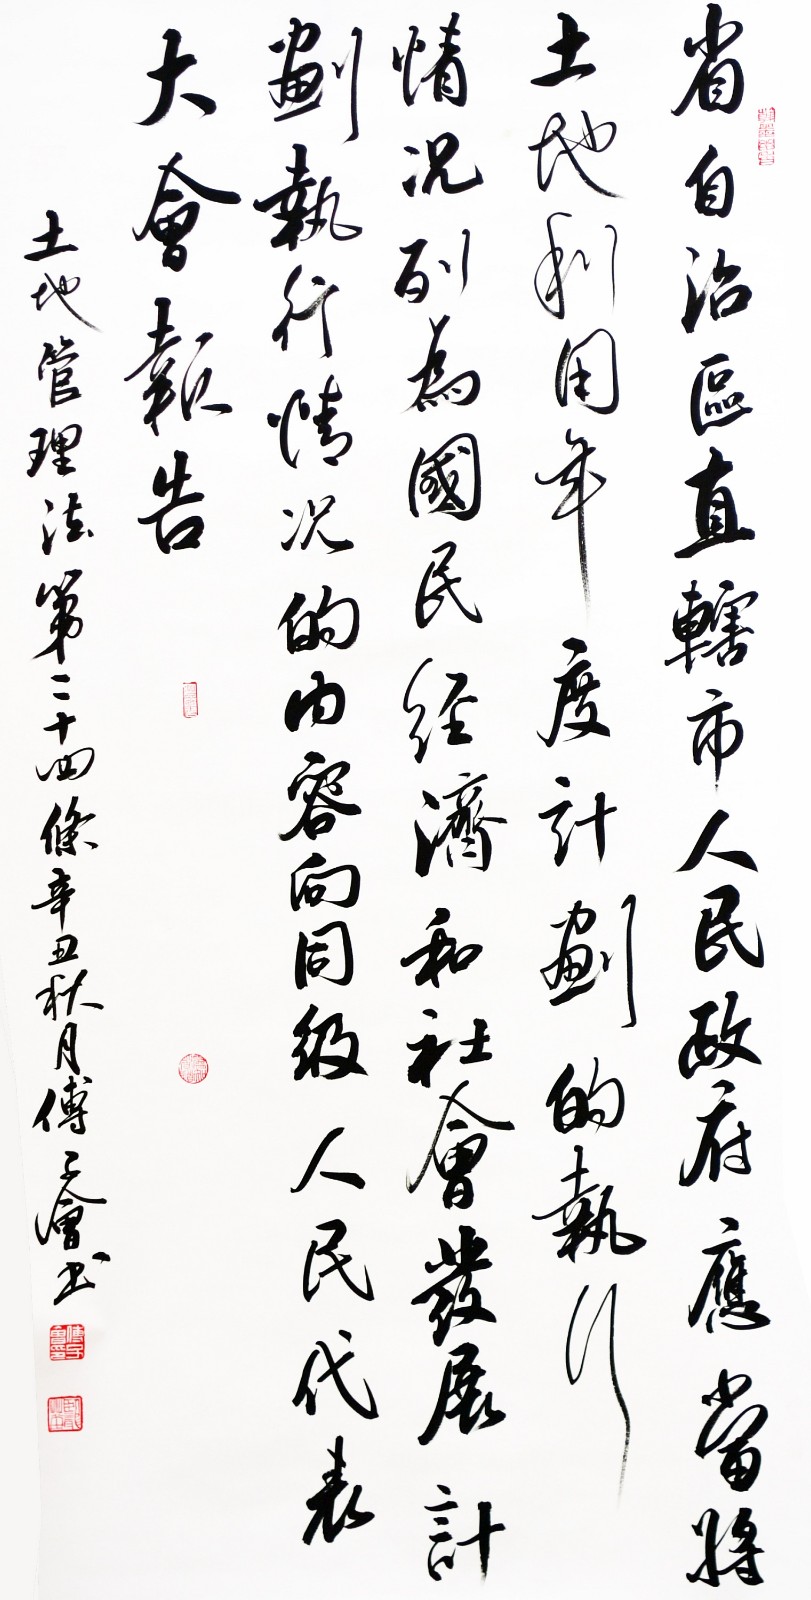 省自治區直轄市人民政府應當將
土地利用年度計劃的執行
情况列為國民經濟和社會發展計
劃執行情况的内容向同級人民代表
大會報告
土地管理法第二十四條辛丑秋月傅子會书